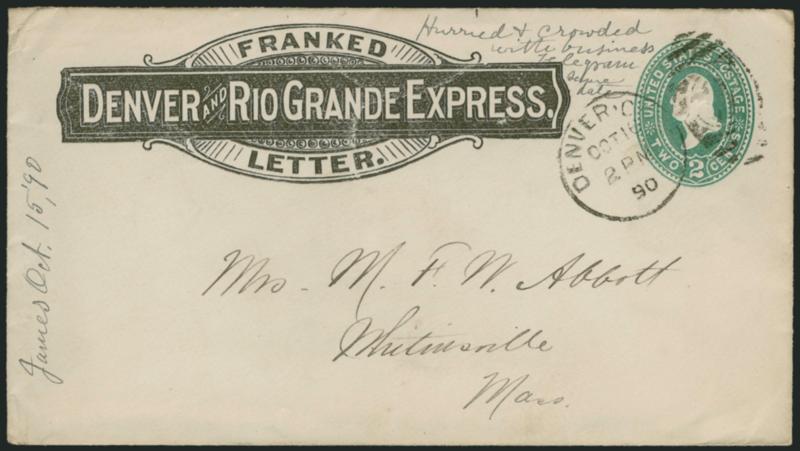 FRANKED
DENVER AND RIO GRANDE EXPRESS.
LETTER.
Hurried & crowded
with business
Telegram
same
date
UNITED STATES POSTAGE
TWO 2 CENTS
DENVER, C
OCT
2 PM
90
James Oct. 15, '90
Mrs. M. F. W. Abbott
Whitinsville
Mass.